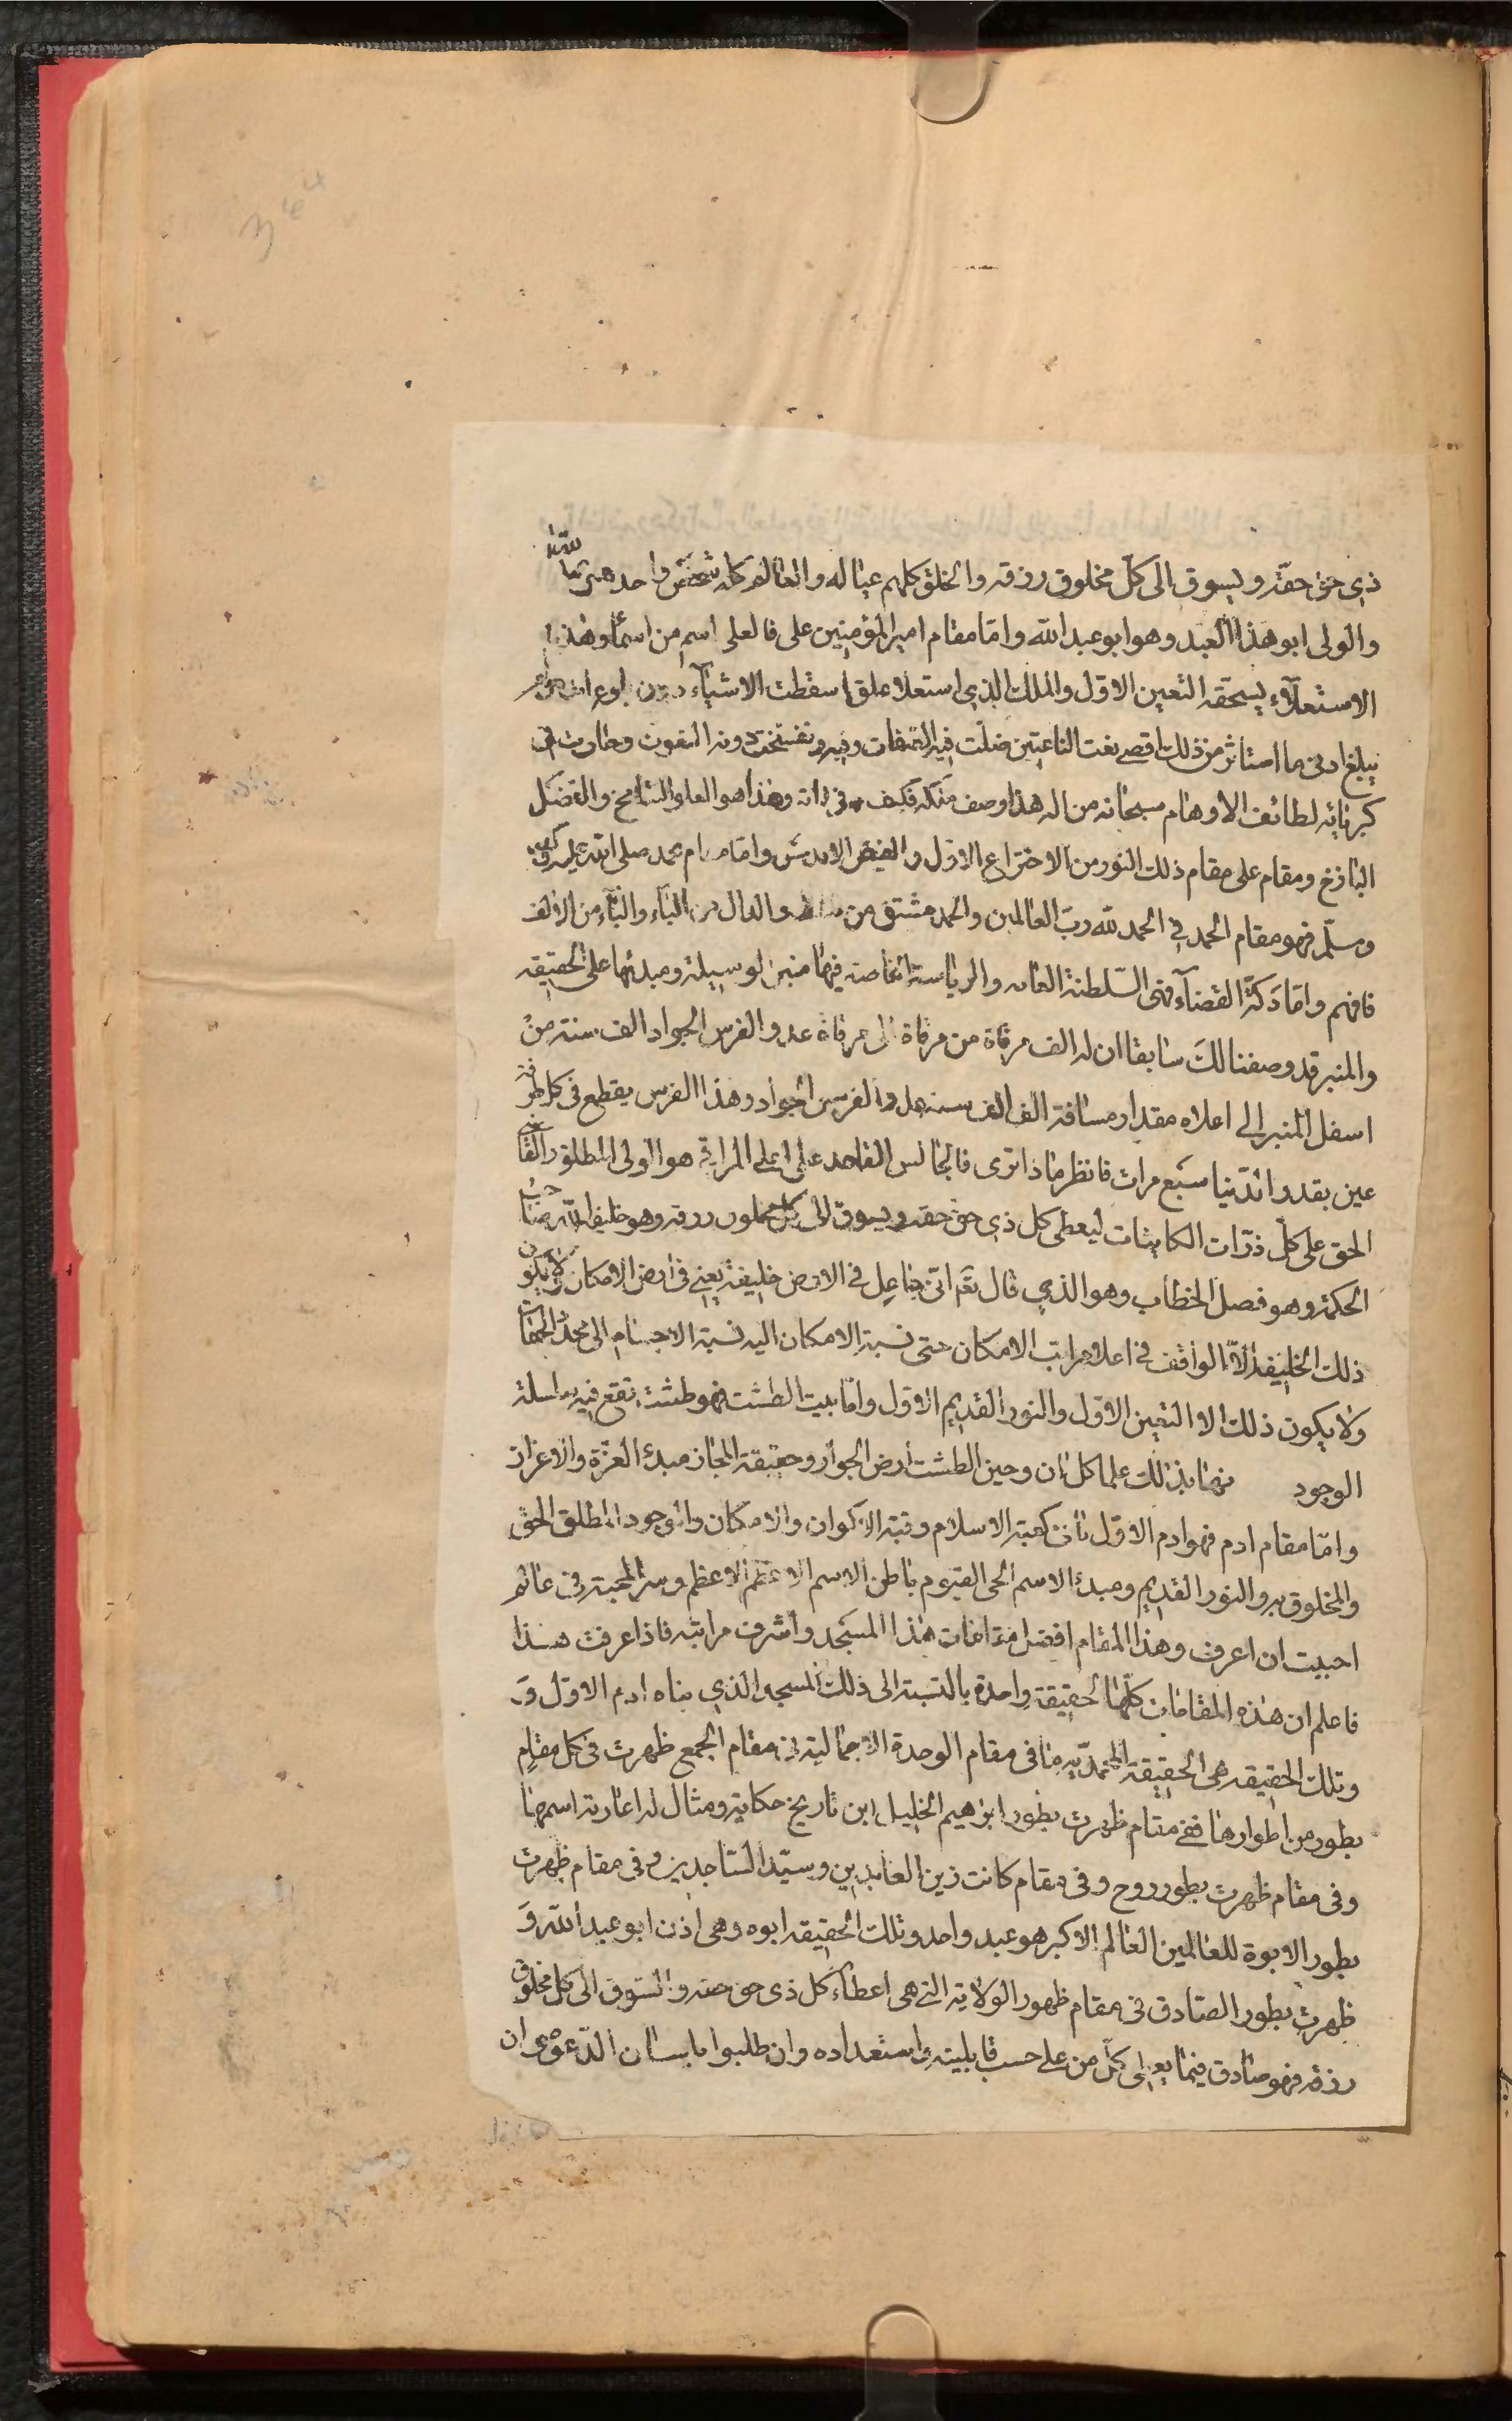 ذي حق حقه ويسوق الى كل مخلوق رزقه والخلق كلهم عياله والعالم كله شخص واحد
والولى ابو هذا العبد وهو ابو عبد الله وامّا مقام امير المؤمنين على فالعلى اسم من اسماء وهذا
الاستعلاء يستحقه التعين الاول والملك الذي استعلا علوا سقطت الاشياء دون بلوغ امده ولم
يبلغ ادنى ما استاثر من ذلك اقصى نعت الناعتين ضلت فيه الصفات وتفسخت دونه النعوت وحارت في
كبريائه لطائف الاوهام سبحانه من اله هذا وصف ملكه فكيف في ذاته وهذا هو العلو الشامخ والفضل
الباذخ ومقام على مقام ذلك النور من الاختراع الاول والفيض الاقدس وامّا مقام محمد صلى الله عليه
وسلّم فهو مقام الحمد في الحمد لله ربّ العالمين والحمد مشتق من والدال من الباء والباء من الالف
فافهم وامّا دكة القضاء فهى السّلطنة العامه والرياسة الخاصة فيها منبر الوسيلة ومبدئها على الحقيقه
والمنبر قد وصفنا لك سابقا ان له الف مرقاة من مرقاة الى مرقاة عدو الفرس الجواد الف سنة من
اسفل المنبر الى اعلاه مقدار مسافة الف الف سنة عدو الفرس الجواد وهذا الفرس يقطع في كل طرفة
عين بقدر الدّنيا سبع مرات فانظر ماذا ترى فالجالس القاعد على اعلى المراقي هو الولى المطلق
الحق على كل ذرّات الكاينات ليعطى كل ذي حق حقه ويسوق الى كل مخلوق رزقه وهو خليفة الله
الحكمة وهو فصل الخطاب وهو الذي قال تعم انى جاعل في الارض خليفة يعنى في ارض الامكان ولا يكون
ذلك الخليفة الّا الواقف في اعلا مراتب الامكان حتى نسبة الامكان اليه نسبة الاجسام الى محدّد الجهات
ولا يكون ذلك الا التعين الاول والنور القديم الاول وامّا بيت الطشت فهو طشت تقع فيه
الوجود علما كل ان وحين الطشت ارض الجواز وحقيقة المجاز مبدء العزة والاعزاز
وامّا مقام ادم فهو ادم الاول كعبة الاسلام وقبة الاكوان والامكان والوجود المطلق الحق
والمخلوق به والنور القديم ومبدء الاسم الحى القيوم باطن الاسم الاعظم الاعظم وسر المحبة في عالم
احببت ان اعرف وهذا المقام افضل مقامات هذا المسجد واشرف مراتبه فاذا عرفت هذا
فاعلم ان هذه المقامات كلّها لحقيقة واحدة بالنسبة الى ذلك المسجد الذي بناه ادم الاول و
وتلك الحقيقه هى الحقيقة المحمّديه منا في مقام الوحدة الاجمالية في مقام الجمع ظهرت في كل مقام
بطور من اطوارها ففي مقام ظهرت بطور ابراهيم الخليل ابن تاريخ حكاية ومثال له اعارته اسمها
وفى مقام ظهرت بطور روح وفى مقام كانت زين العابدين وسيّد الساجدين وفى مقام ظهرت
بطور الابوة للعالمين العالم الاكبر هو عبد واحد وتلك الحقيقه ابوه وهى اذن ابو عبد الله و
ظهرت بطور الصادق في مقام ظهور الولاية التى هى اعطاء كل ذى حق حقه والسوق الى كل مخلوق
رزقه فهو صادق فيما يعطى كل من على حسب قابليته واستعداده وان طلبوا بلسان الدّعوى ان